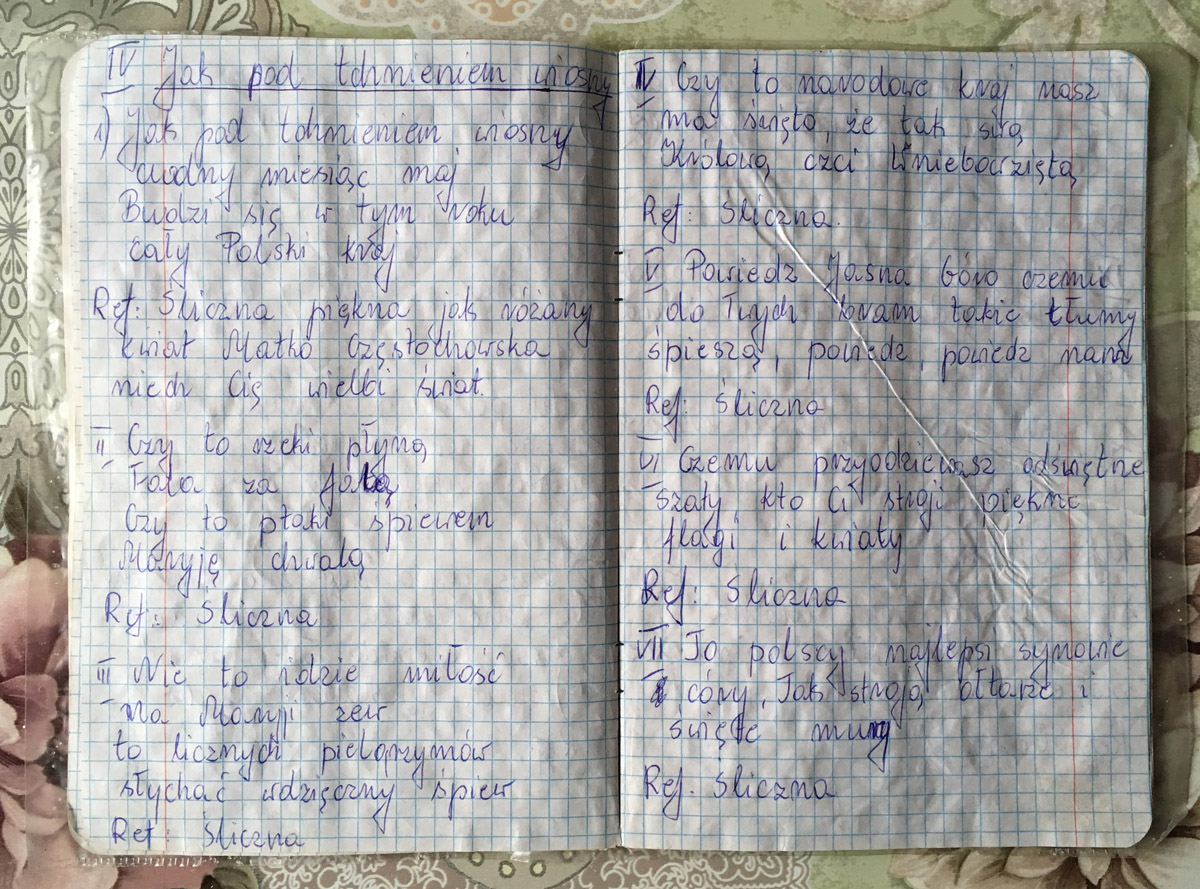 IV Jak pod tchnieniem wiosny
1) Jak pod tchnieniem wiosny
cudny miesiąc maj
Budzi się w tym roku
cały Polski kraj
Ref: Śliczna piękna jak różany
kwiat Matko Częstochowska
niech Cię wielbi świat.
II Czy to rzeki płyną
Fala za falą
Czy to ptaki śpiewem
Maryję chwalą
Ref: Śliczna
III Nie to idzie miłość
na Maryji zew
to licznych pielgrzymów
słychać wdzięczny śpiew
Ref: Śliczna
IV Czy to narodowe kraj nasz
ma święto, że tak swą
Królową czci Wniebowziętą
Ref: Śliczna.
V Powiedz Jasna Góro czemu
do Twych bram takie tłumy
śpieszą, powiedz, powiedz nam
Ref: Śliczna
VI Czemu przyodziewasz odświętne
szaty kto Ci stroji piękne
flagi i kwiaty
Ref: Śliczna
VII To polscy najlepsi synowie
i córy, Tak stroją ołtarze i
święte mury
Ref. Śliczna